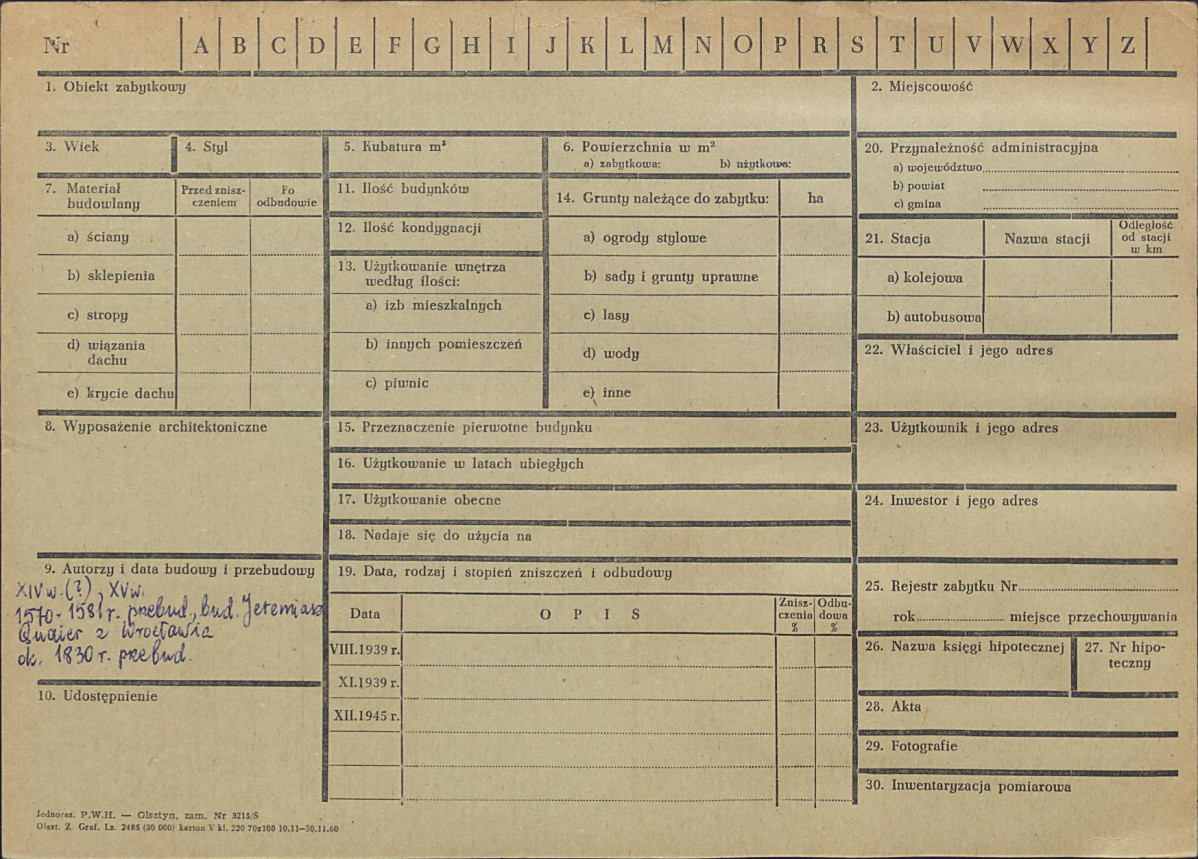 Nr A B C D E F G H I J K L M N O P R S T U V W X Y Z
1. Obiekt zabytkowy
2. Miejscowość
3. Wiek
4. Styl
5. Kubatura m³
6. Powierzchnia w m²
a) zabytkowa: b) użytkowa:
20. Przynależność administracyjna
a) województwo
b) powiat
c) gmina
7. Materiał
budowlany
Przed znisz-
czeniem
Po
odbudowie
a) ściany
b) sklepienia
c) stropy
d) wiązania
dachu
e) krycie dachu
11. Ilość budynków
12. Ilość kondygnacji
13. Użytkowanie wnętrza
według ilości:
a) izb mieszkalnych
b) innych pomieszczeń
c) piwnic
14. Grunty należące do zabytku:
ha
a) ogrody stylowe
b) sady i grunty uprawne
c) lasy
d) wody
e) inne
21. Stacja
Nazwa stacji
Odległość
od stacji
w km
a) kolejowa
b) autobusowa
22. Właściciel i jego adres
8. Wyposażenie architektoniczne
15. Przeznaczenie pierwotne budynku
16. Użytkowanie w latach ubiegłych
17. Użytkowanie obecne
18. Nadaje się do użycia na
23. Użytkownik i jego adres
24. Inwestor i jego adres
9. Autorzy i data budowy i przebudowy
XIV w. (?), XV w.
1570-1581 r. przebud., bud. Jeremiasz
Quaier z Wrocławia
ok. 1830 r. przebud.
10. Udostępnienie
19. Data, rodzaj i stopień zniszczeń i odbudowy
Data
O P I S
Znisz-
czenia
%
Odbu-
dowa
%
VIII.1939 r.
XI.1939 r.
XII.1945 r.
25. Rejestr zabytku Nr
rok miejsce przechowywania
26. Nazwa księgi hipotecznej
27. Nr hipo-
teczny
28. Akta
29. Fotografie
30. Inwentaryzacja pomiarowa
Jednoraz. P.W.H. — Olsztyn, zam. Nr 3215/S
Olszt. Z. Graf. Lz. 2485 (30 000) karton V kl. 220 70x100 10.11—30.11.60